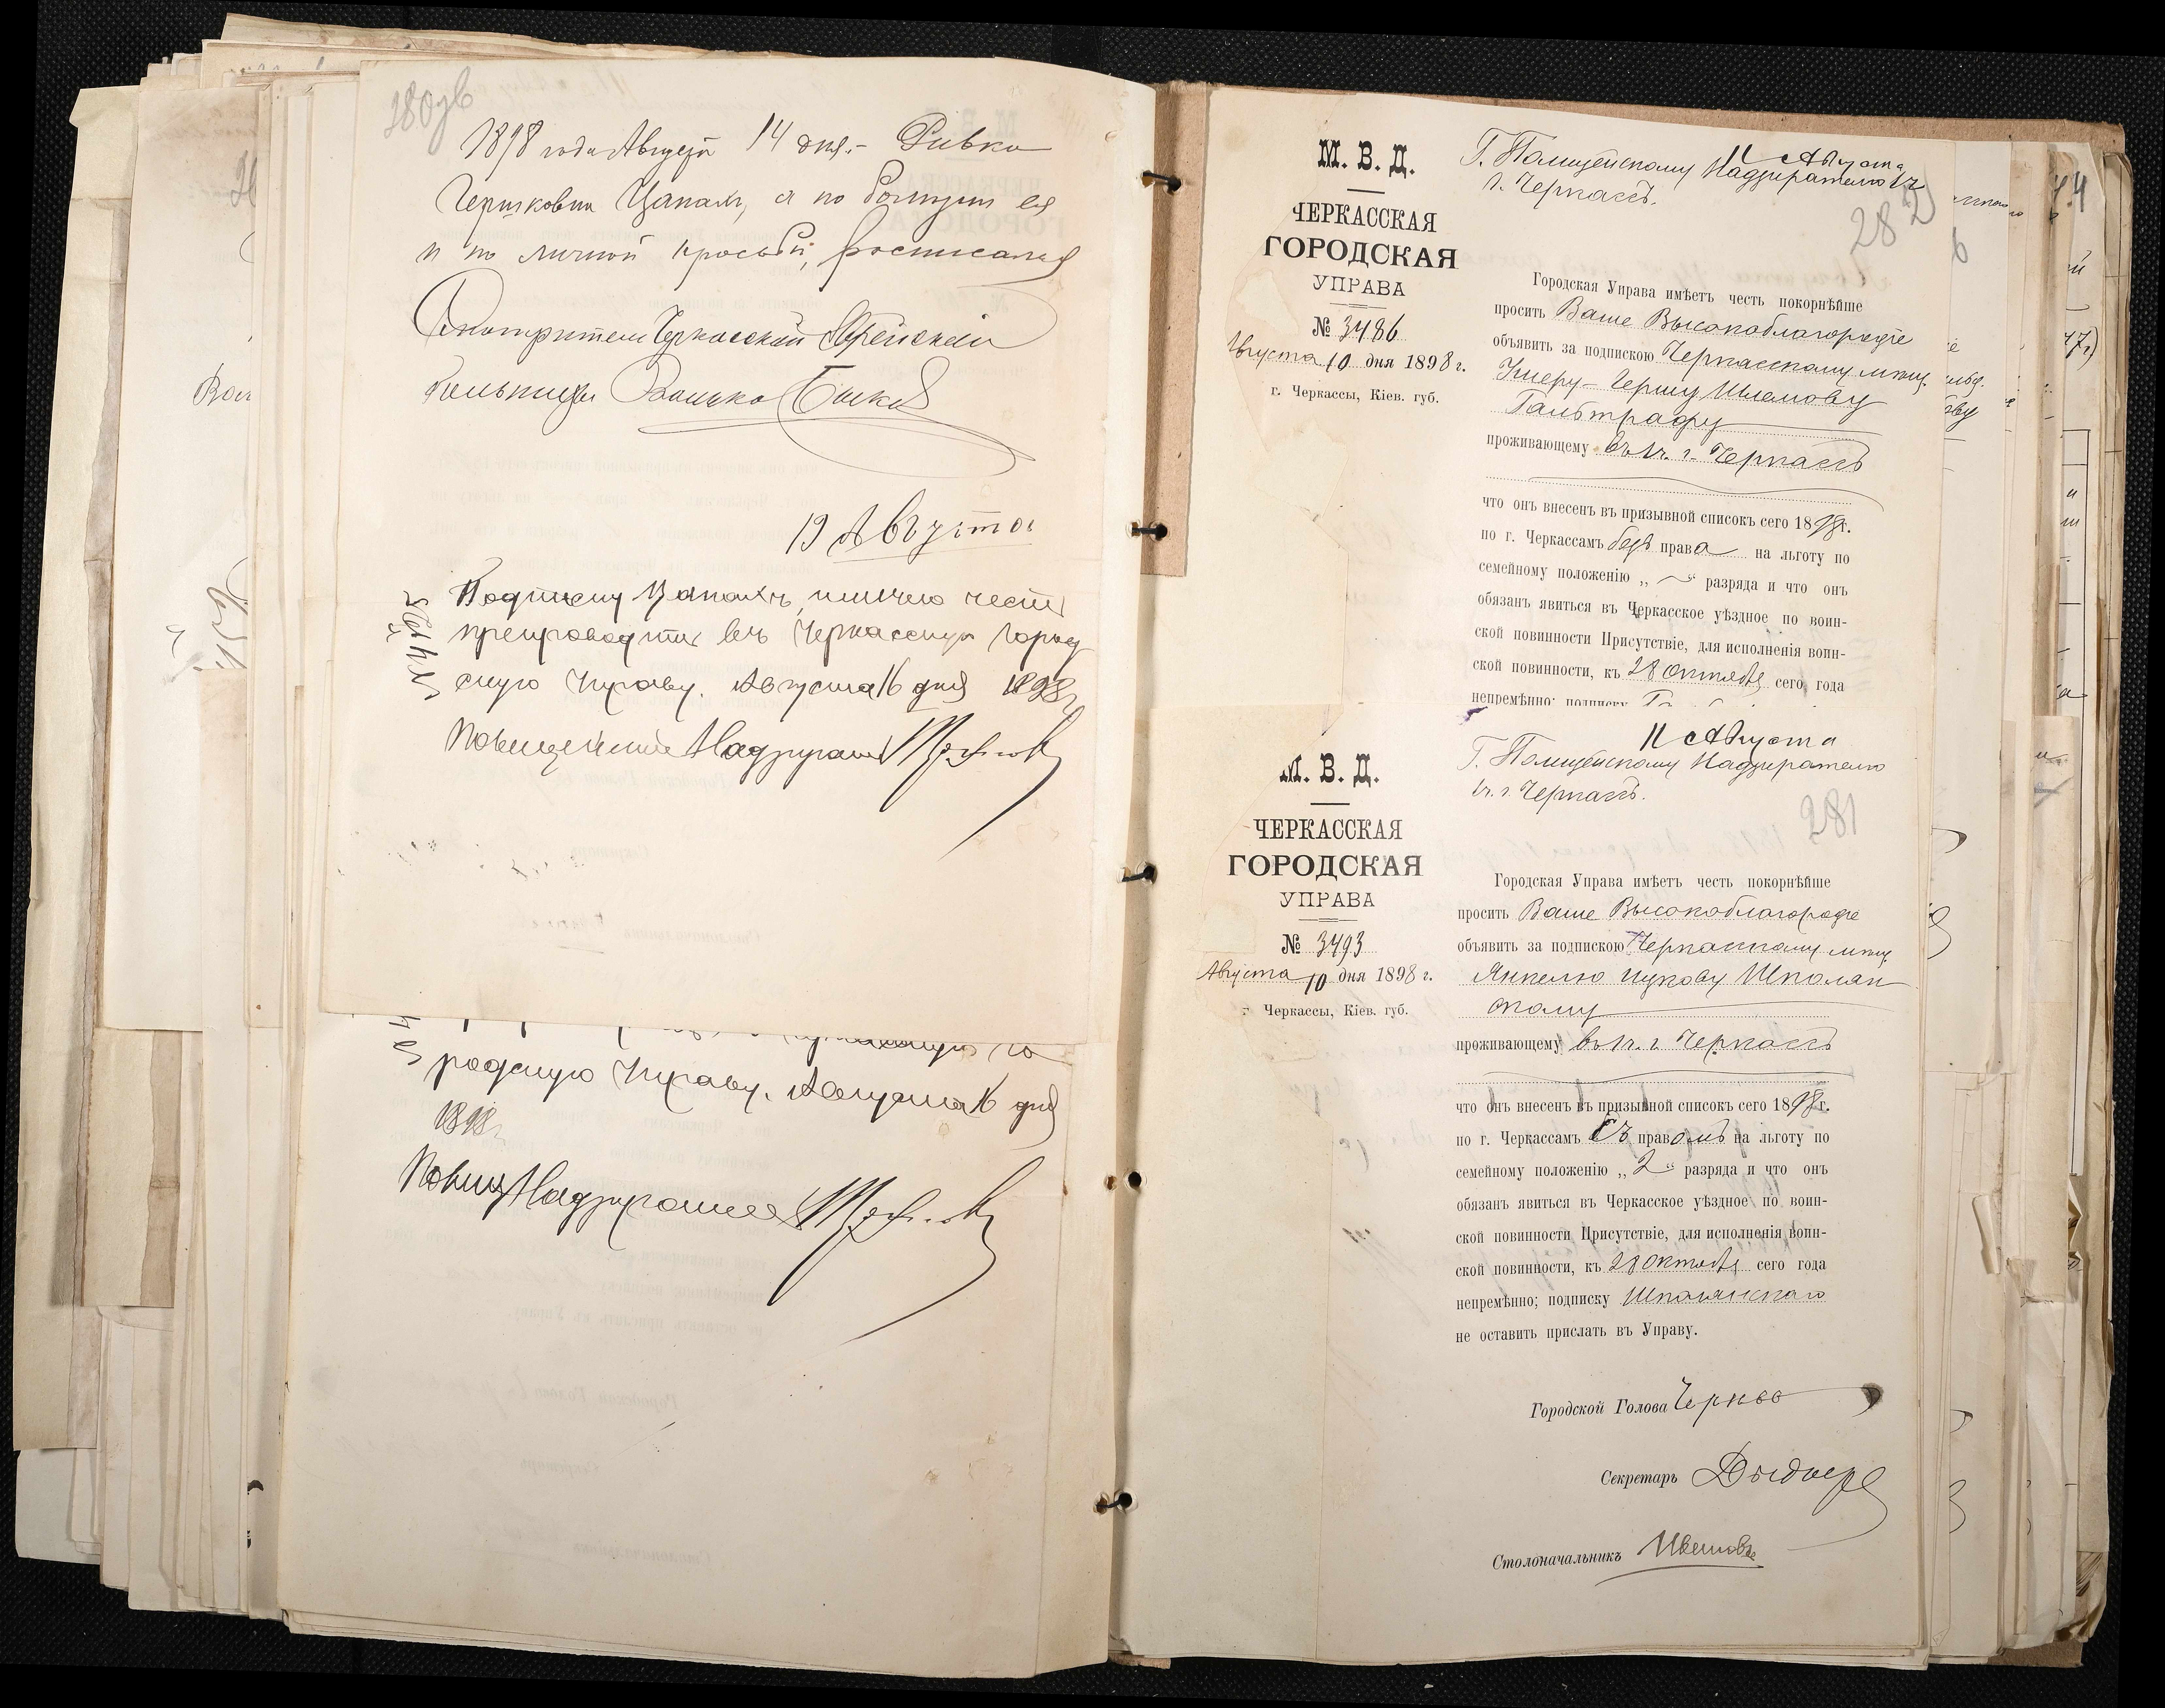 280 об
1898 года Августа 14 дня.- Ривка
Гершковна Цапахъ, а по болѣзни ея
и по личной просьбѣ, росписался
Смотритель Черкасской Еврейской
больницы
19 Августа
Подписку Цапахъ имѣю честь
препроводить въ Черкасскую Город
скую Управу. Августа 16 дня 1898 г.
Полицейскій Надзиратель
родскую Управу. Августа 16 дня
1898 г.
Полиц Надзиратель
М. В. Д.
ЧЕРКАССКАЯ
ГОРОДСКАЯ
УПРАВА
№ 3486
Августа 10 дня 1898 г.
г. Черкассы, Кіев. губ.
11 Августа
Г. Полицейскому Надзирателю 1 ч
г. Черкассъ.
282
Городская Управа имѣетъ честь покорнѣйше
просить Ваше Высокоблагородіе
объявить за подпискою Черкасскому мѣщ.
Кисеру-Гершу Шлемову
Гальтрафу
проживающему въ 1 ч. г. Черкассъ
что онъ внесенъ въ призывной списокъ сего 1898 г.
по г. Черкассамъ безъ права на льготу по
семейному положенію „ — “ разряда и что онъ
обязанъ явиться въ Черкасское уѣздное по воин-
ской повинности Присутствіе, для исполненія воин-
ской повинности, къ 28 Октября сего года
непремѣнно; подписку
М. В. Д.
ЧЕРКАССКАЯ
ГОРОДСКАЯ
УПРАВА
№ 3493
Августа 10 дня 1898 г.
г. Черкассы, Кіев. губ.
11 Августа
Г. Полицейскому Надзирателю
1 ч. г. Черкассъ.
281
Городская Управа имѣетъ честь покорнѣйше
просить Ваше Высокоблагородіе
объявить за подпискою Черкасскому мѣщ.
Янкелю Ицкову Шполян
скому
проживающему въ 1 ч. г. Черкассъ
что онъ внесенъ въ призывной списокъ сего 1898 г.
по г. Черкассамъ Съ правомъ на льготу по
семейному положенію „ 2 “ разряда и что онъ
обязанъ явиться въ Черкасское уѣздное по воин-
ской повинности Присутствіе, для исполненія воин-
ской повинности, къ 28 Октября сего года
непремѣнно; подписку Шполянскаго
не оставить прислать въ Управу.
Городской Голова
Секретарь
Столоначальникъ